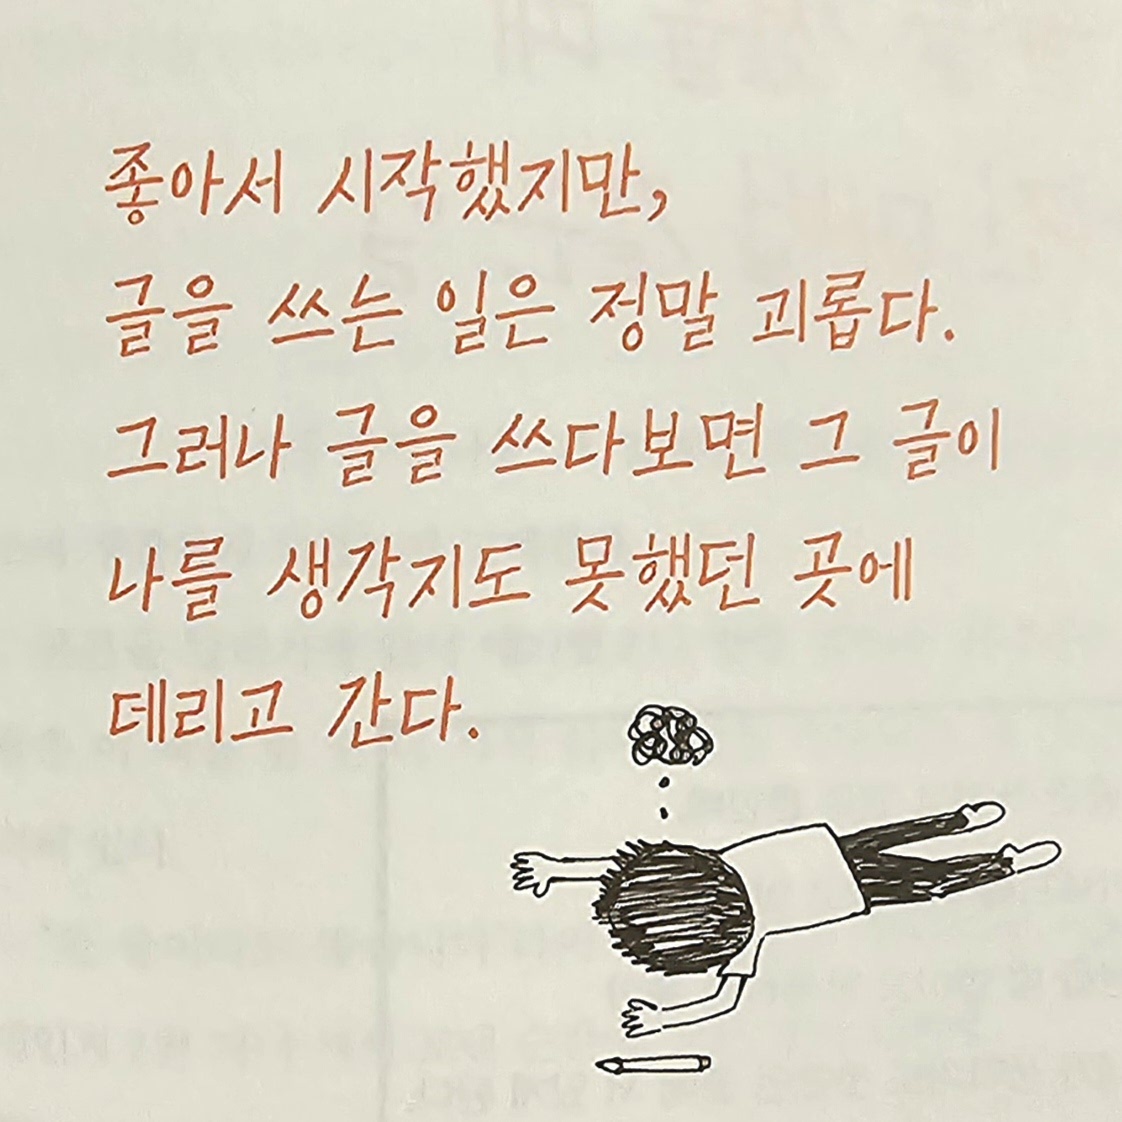 좋아서 시작했지만,
글을 쓰는 일은 정말 괴롭다.
그러나 글을 쓰다보면 그 글이
나를 생각지도 못했던 곳에
데리고 간다.